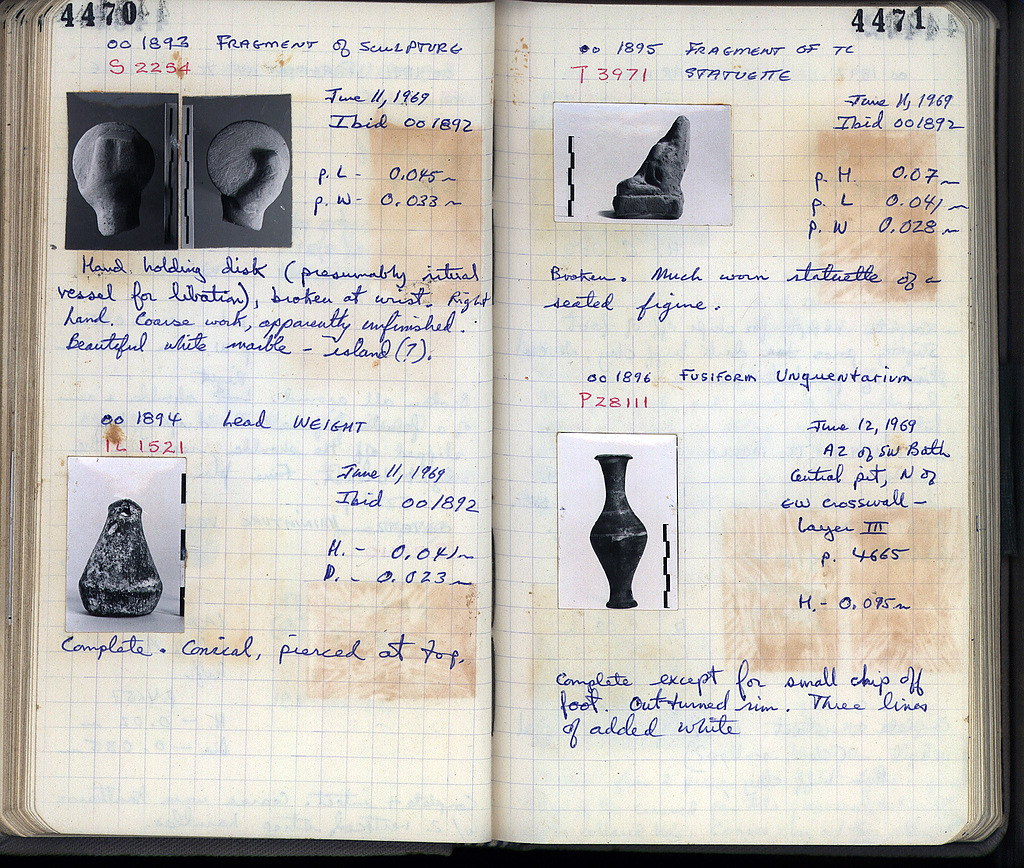 4470
OO 1893 FRAGMENT of SCULPTURE
S 2254
June 11, 1969
Ibid OO 1892
p. L - 0.045 m
p. W - 0.033 m
Hand holding disk (presumably ritual
vessel for libation), broken at wrist. Right
hand. Coarse work, apparently unfinished.
Beautiful white marble - island (?).
OO 1894 Lead WEIGHT
IL 1521
June 11, 1969
Ibid OO 1892
H. - 0.041 m
D. - 0.023 m
Complete. Conical, pierced at top.
4471
OO 1895 FRAGMENT OF TC
T 3971 STATUETTE
June 11, 1969
Ibid OO 1892
p. H 0.07 m
p. L 0.041 m
p. W 0.028 m
Broken. Much worn statuette of a
seated figure.
OO 1896 FUSIFORM Unguentarium
P 28111
June 12, 1969
A2 of SW Bath
Central pit, N of
EW crosswall -
Layer III
p. 4665
H. - 0.095 m
Complete except for small chip off
foot. Out-turned rim. Three lines
of added white